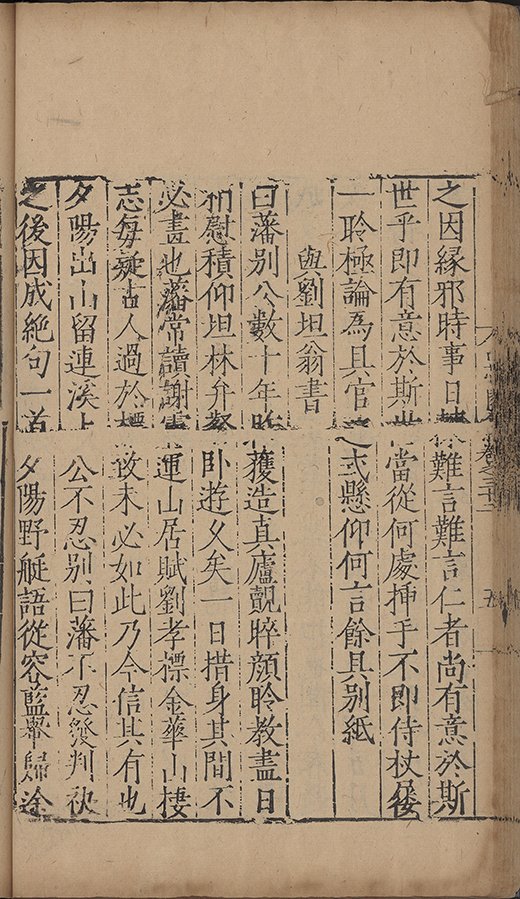 之因緣邪時事日難言難言仁者尚有意於斯
世乎即有意於斯世當從何處揷手不即侍杖屨
一聆極論為具官之式懸仰何言餘具別紙
與劉坦翁書
曰藩別公數十年昨獲造真廬覿睟顏聆教盡日
积慰積仰坦林弁卧遊乂矣一日措身其間不
必畫也藩常讀謝運山居賦劉孝標金華山棲
志每疑古人過於故未必如此乃今信其有也
夕陽出山留連溪上公不忍別曰藩不忍發判袂
之後因成絕句一首夕陽野艇語從容藍轝歸途
卷之三十二
五